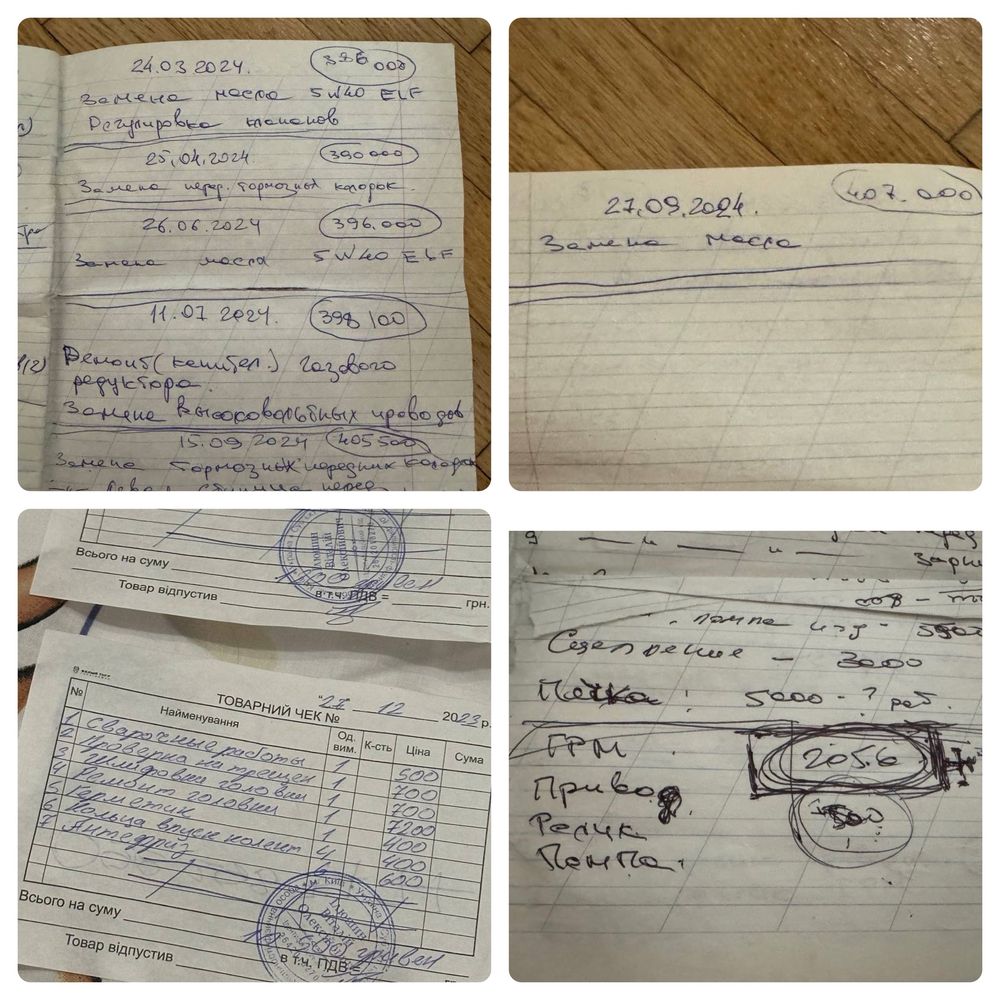 24.03.2024. 386 000
Замена масла 5W40 ELF
Регулировка клапанов
25.04.2024. 390000
Замена перед. тормозных колодок.
26.06.2024 396.000
Замена масла 5W40 ELF
11.07 2024. 398 100
Ремонт (капител.) газового
редуктора.
Замена высоковольтных проводов
15.09 2024 405500
Замена тормозных передних колодок
27.09.2024. 407.000
Замена масла
Всього на суму
Товар відпустив в т.ч. ПДВ = грн.
ТОВАРНИЙ ЧЕК № 12 2023 р.
№ Найменування Од. вим. К-сть Ціна Сума
1 Сварочные работы 1 500
2 Проверка на трещин 1 700
3 Шлифовка головки 1 700
4 Ремонт головки 1 7200
5 Герметик 1 400
6 Кольца впускн колект 4 400
7 Антифриз 6 600
Всього на суму
Товар відпустив в т.ч. ПДВ =
помпа
Сцепление - 3000
Печка: 5000 - ? раб.
ГРМ 2056
Привод
Ролик
Помпа.